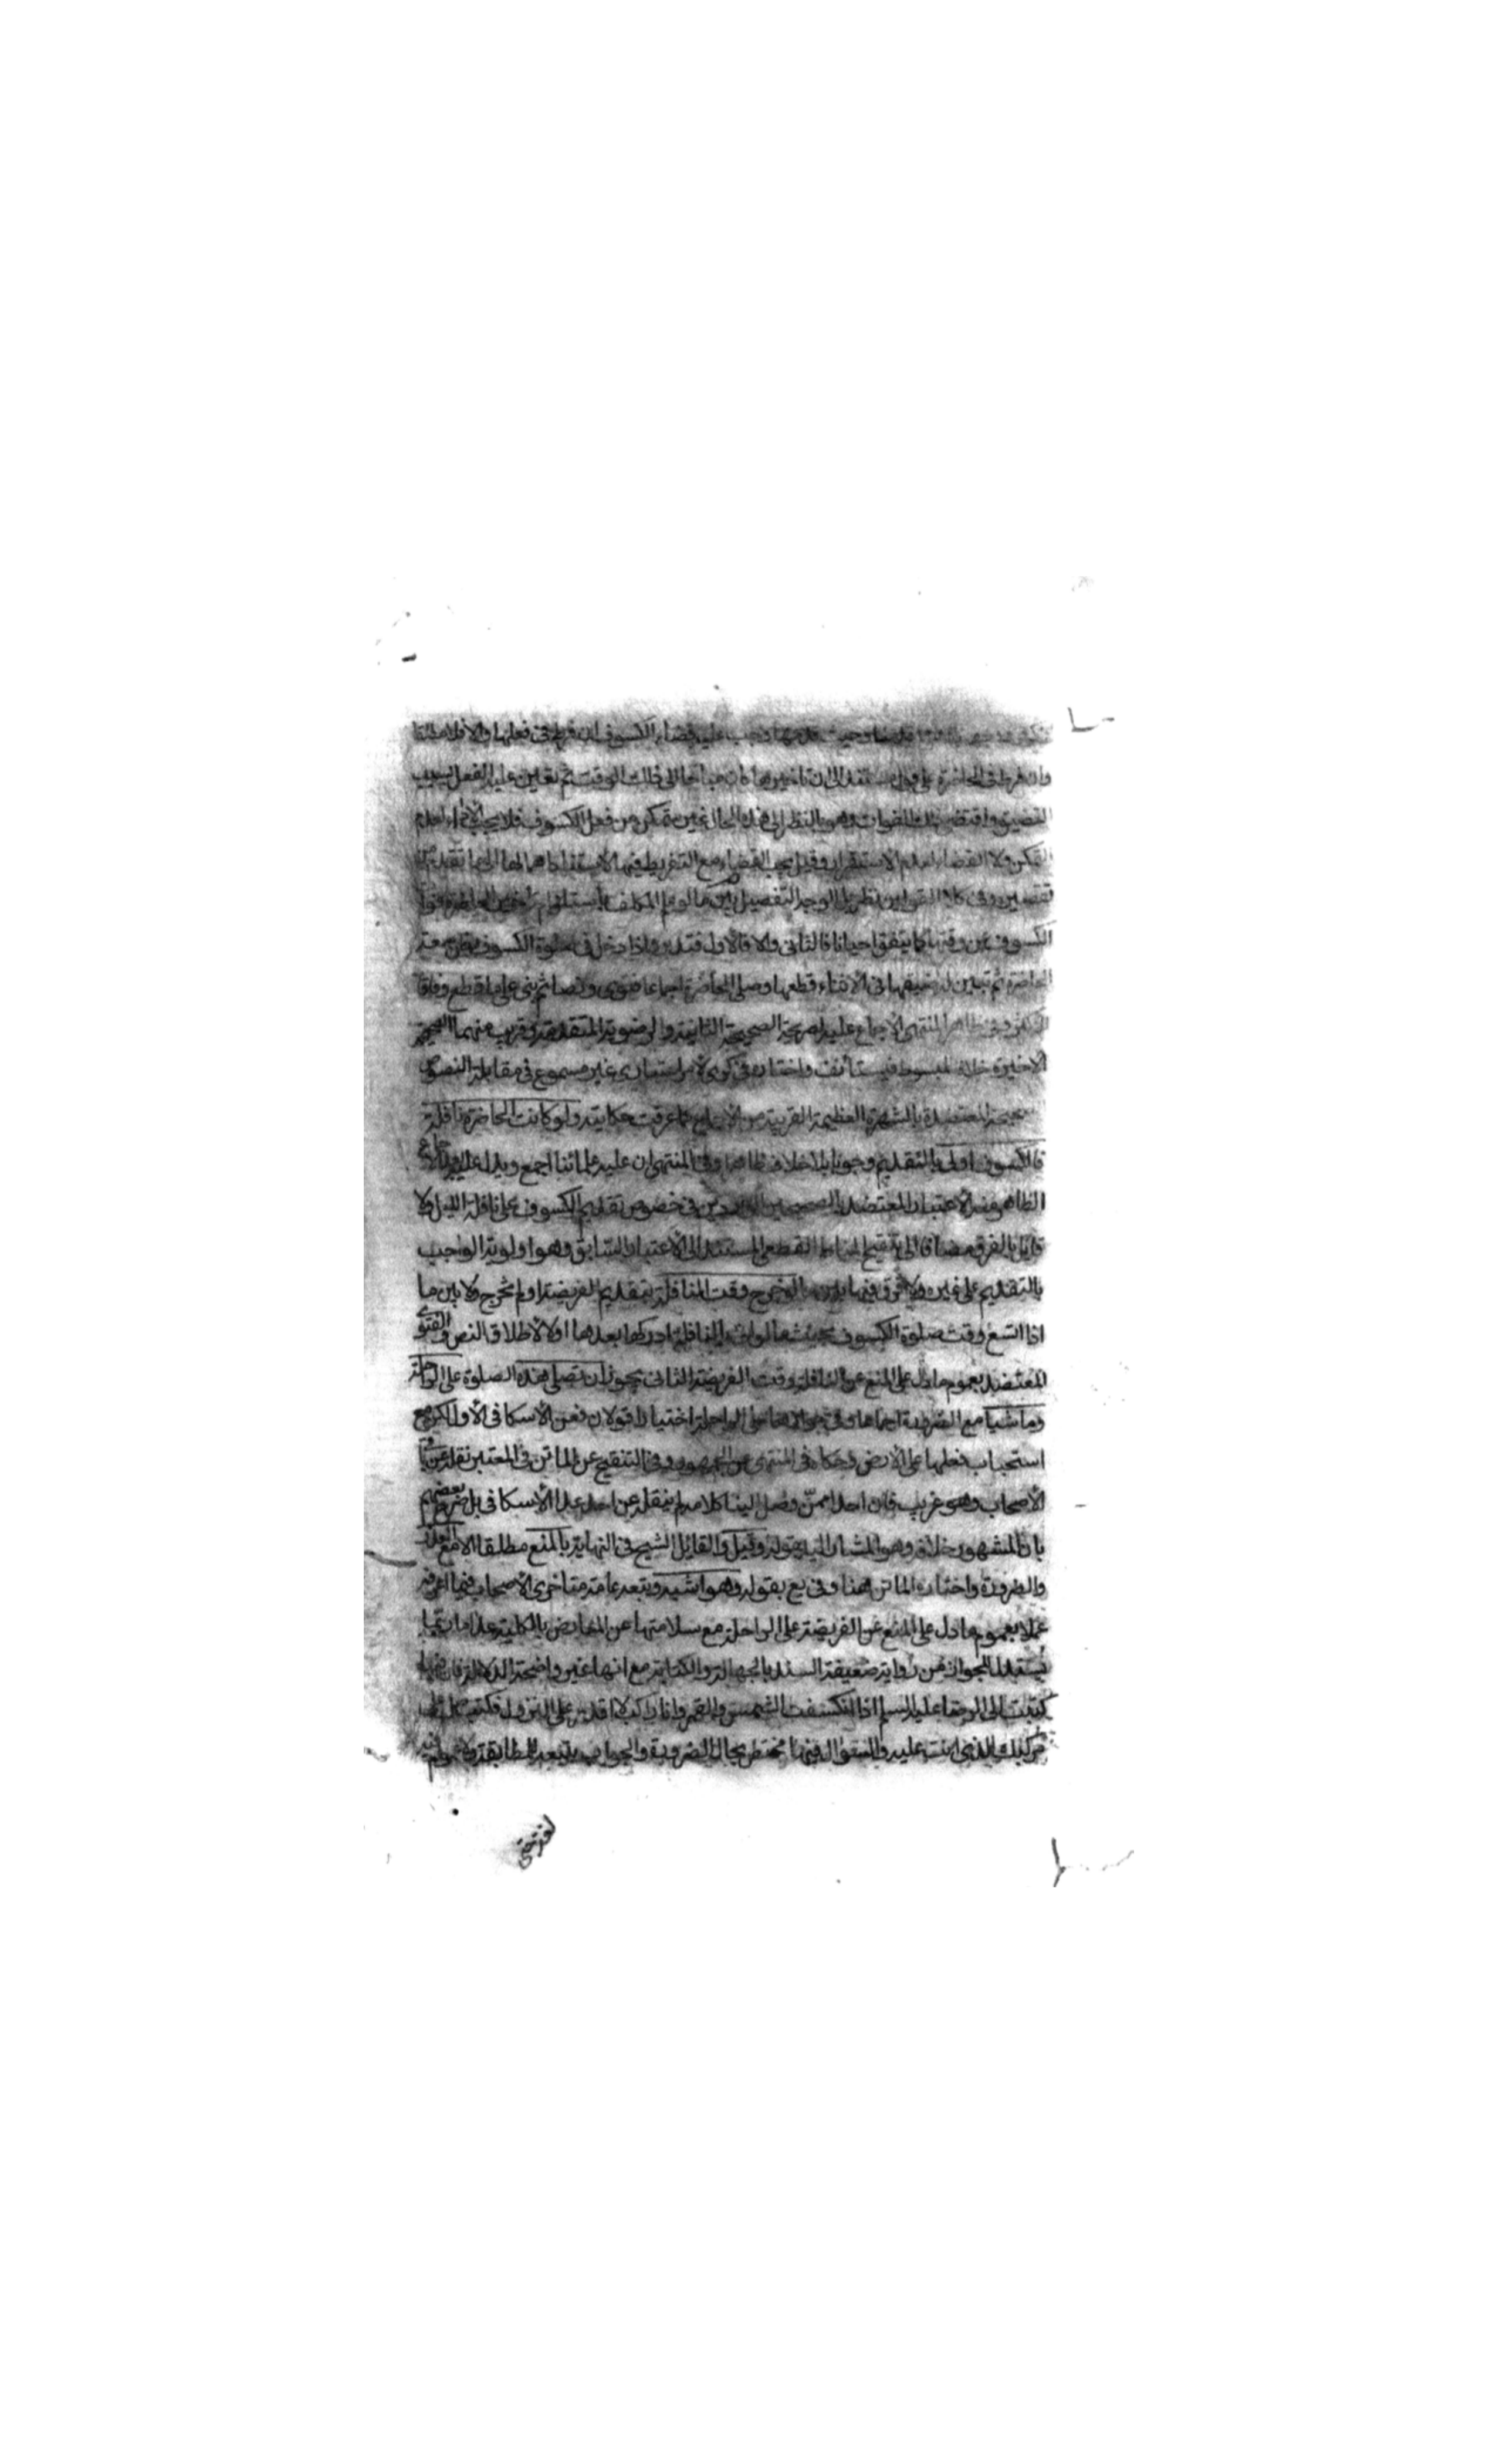 وحيث قدمها وجب عليه قضاء الكسوف ان فرط في فعلها والا فلا مطلقا
وان فرط في الحاضرة على قول مستند الى ان تاخيرها كان مباحا الى ذلك الوقت ثم تعين عليه الفعل بسبب
التضيق واقتضى ذلك الفوات وهو بالنظر الى هذه الحال غير متمكن من فعل الكسوف فلا يجب الاداء لعدم
التمكن ولا القضاء لعدم الاستقرار وقيل يجب القضاء مع التفريط فيها لاستناد اهمالها الى ما تقدم من
تقصيره وفي كلا القولين نظر بل الوجه التفصيل بين ما لو علم المكلف باستلزام تاخير الحاضرة فوات
الكسوف عن وقتها كما يتفق احيانا فالثاني والا فالاول فتدبر واذا دخل في صلوة الكسوف بظن سعة
الحاضرة ثم تبين له ضيقها في الاثناء قطعها وصلى الحاضرة اجماعا فتوى ونصا ثم بنى على ما قطع وفاقا
للاكثر وفي ظاهر المنتهى الاجماع عليه لصريح الصحيحة الثانية والرضوية المتقدمة وقريب منهما الصحيحة
الاخيرة خلافا للمبسوط فيستأنف واختاره في كرى لامر اعتباري غير مسموع في مقابلة النصوص
الصحيحة المعتضدة بالشهرة العظيمة القريبة من الاجماع كما عرفت حكايته ولو كانت الحاضرة نافلة
فالكسوف اولى بالتقديم وجوبا بلا خلاف ظاهرا وفي المنتهى ان عليه علمائنا اجمع ويدل عليه بعد الاجماع
الظاهر منه الاعتبار المعتضد بالصحيحين الواردين في خصوص تقديم الكسوف على نافلة الليل ولا
قايل بالفرق مضافا الى تنقيح المناط القطعي المستند الى الاعتبار السابق وهو اولوية الواجب
بالتقديم على غيره ولا فرق فيها بين ما لو خرج وقت النافلة بتقديم الفريضة او لم تخرج ولا بين ما
اذا اتسع وقت صلوة الكسوف بحيث لو اتى بالنافلة ادركها بعدها اولا لاطلاق النص والفتوى
المعتضد بعموم ما دل على المنع عن النافلة وقت الفريضة الثاني يجوز ان تصلى هذه الصلوة على الراحلة
وماشيا مع الضرورة اجماعا وفي جوازها على الراحلة اختيارا قولان فعن الاسكافي الاول لكن مع
استحباب فعلها على الارض وحكاه في المنتهى عن الجمهور وفي التنقيح عن الماتن في المعتبر نقله عن باقي
الاصحاب وهو غريب فان احدا ممن وصل الينا كلامه لم ينقله عن احد عدا الاسكافي بل صرح بعضهم
بان المشهور خلافه وهو المشار اليه بقوله وقيل والقايل الشيخ في النهاية بالمنع مطلقا الا مع العذر
والضرورة واختاره الماتن هنا وفي يع بقوله وهو اشبه وتبعه عامة متاخري الاصحاب فيما اعرفه
عملا بعموم ما دل على المنع عن الفريضة على الراحلة مع سلامتها عن المعارض بالكلية عدا ما ربما
يستدل للجواز من رواية ضعيفة السند بالجهالة والكتابة مع انها غير واضحة الدلالة فان فيها
كتبت الى الرضا عليه السلم اذا انكسفت الشمس والقمر وانا راكب لا اقدر على النزول فكتب صل على
مركبك الذي انت عليه والسؤال فيها مختص بحال الضرورة والجواب يتبعه للمطابقة ولا عموم فيه